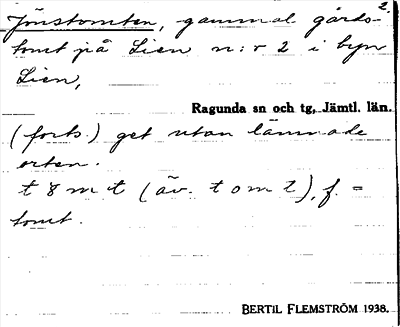 2.
Jönstomten, gammal gårds-
tomt på Lien n:r 2 i byn
Lien,
Ragunda sn och tg, Jämtl. län.
(forts.) get utan lämnade
orten.
t 8 m t (äv. t o m t), f. =
tomt.
BERTIL FLEMSTRÖM 1938.